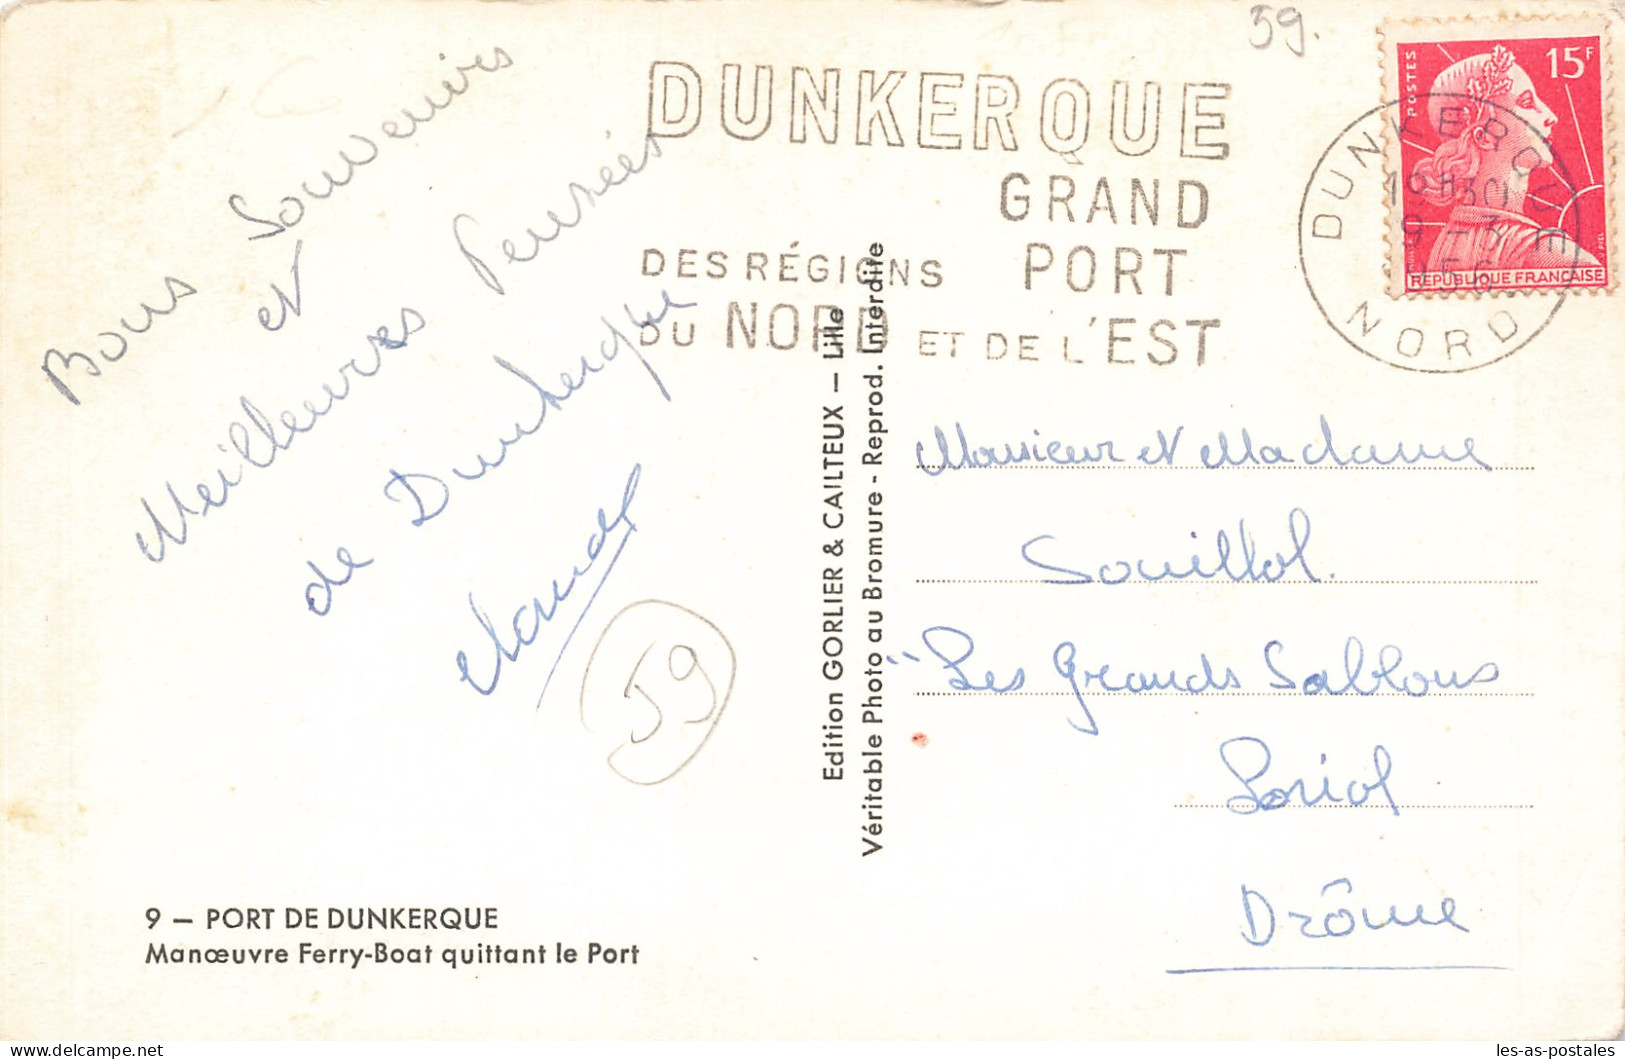 59.
Bons Souvenirs
et
Meilleures Pensées
de Dunkerque
Claude
59
9 — PORT DE DUNKERQUE
Manœuvre Ferry-Boat quittant le Port
Edition GORLIER & CAILTEUX — Lille
Véritable Photo au Bromure - Reprod. Interdite
DUNKERQUE
GRAND
DES RÉGIONS PORT
DU NORD ET DE L'EST
POSTES 15F
REPUBLIQUE FRANÇAISE
DUNKERQUE
19H30
9 - 3
1956
NORD
Monsieur et Madame
Souillol.
"Les Grands Sablons
Loriol
Drôme
les-as-postales